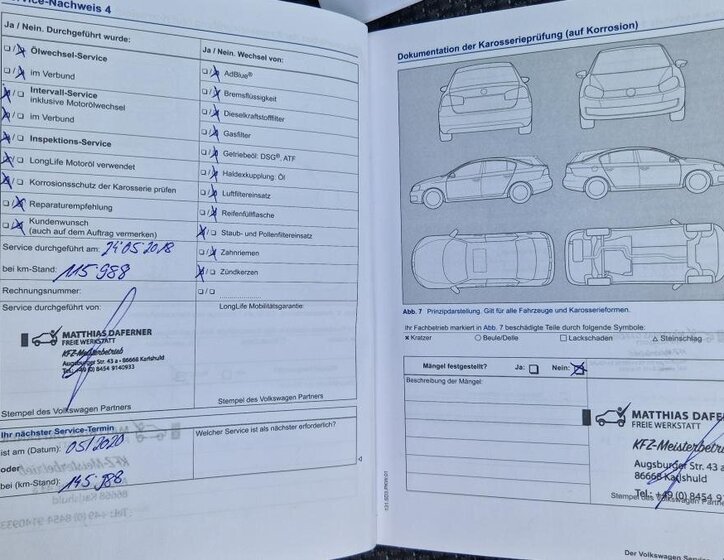 ervice-Nachweis 4
Ja / Nein. Durchgeführt wurde:
Ölwechsel-Service
im Verbund
Intervall-Service
inklusive Motorölwechsel
im Verbund
Inspektions-Service
LongLife Motoröl verwendet
Korrosionsschutz der Karosserie prüfen
Reparaturempfehlung
Kundenwunsch
(auch auf dem Auftrag vermerken)
Service durchgeführt am: 24.05.2018
bei km-Stand: 115.988
Rechnungsnummer:
Service durchgeführt von:
MATTHIAS DAFERNER
FREIE WERKSTATT
KFZ-Meisterbetrieb
Augsburger Str. 43 a • 86668 Karlshuld
Tel.: +49 (0) 8454 9140933
Stempel des Volkswagen Partners
Ihr nächster Service-Termin
ist am (Datum): 05/2020
oder
bei (km-Stand): 145.988
Ja / Nein. Wechsel von:
AdBlue®
Bremsflüssigkeit
Dieselkraftstofffilter
Gasfilter
Getriebeöl: DSG®, ATF
Haldexkupplung: Öl
Luftfiltereinsatz
Reifenfüllflasche
Staub- und Pollenfiltereinsatz
Zahnriemen
Zündkerzen
LongLife Mobilitätsgarantie:
Stempel des Volkswagen Partners
Welcher Service ist als nächster erforderlich?
Dokumentation der Karosserieprüfung (auf Korrosion)
Abb. 7 Prinzipdarstellung. Gilt für alle Fahrzeuge und Karosserieformen.
Ihr Fachbetrieb markiert in Abb. 7 beschädigte Teile durch folgende Symbole:
× Kratzer ○ Beule/Delle □ Lackschaden △ Steinschlag
Mängel festgestellt? Ja: Nein:
Beschreibung der Mängel:
MATTHIAS DAFERNE
FREIE WERKSTATT
KFZ-Meisterbetrie
Augsburger Str. 43 a
86668 Karlshuld
Tel.: +49 (0) 8454 91
Stempel des Volkswagen Par
Der Volkswagen Service